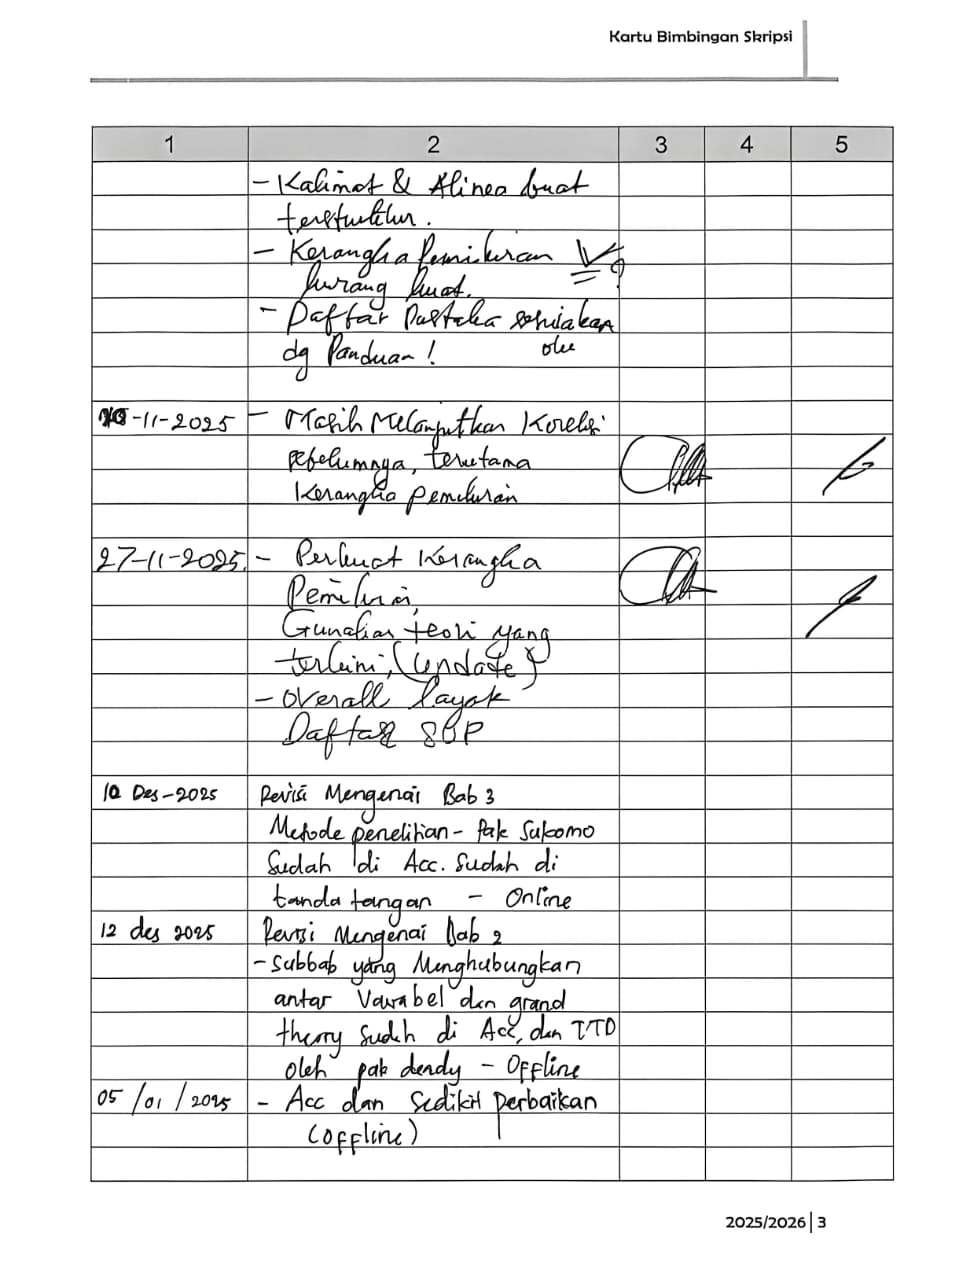 Kartu Bimbingan Skripsi
1 2 3 4 5
- Kalimat & Alinea buat
terstruktur.
- Kerangka Pemikiran
kurang kuat.
- Daftar Pustaka sesuiakan
dg Panduan!
-11-2025 - Masih Melanjutkan Koreksi
sebelumnya, terutama
Kerangka pemikiran
27-11-2025. - Perkuat Kerangka
Pemikiran,
Gunakan teori yang
terkini, (update)
- Overall layak
Daftar SUP
10 Des-2025 Revisi Mengenai Bab 3
Metode penelitian - Pak Sukomo
Sudah di Acc. Sudah di
tanda tangan - Online
12 des 2025 Revisi Mengenai Bab 2
- Subbab yang Menghubungkan
antar Variabel dan grand
theory Sudah di Acc, dan TTD
oleh pak dendy - Offline
05/01/2025 - Acc dan Sedikit perbaikan
(offline)
2025/2026 | 3